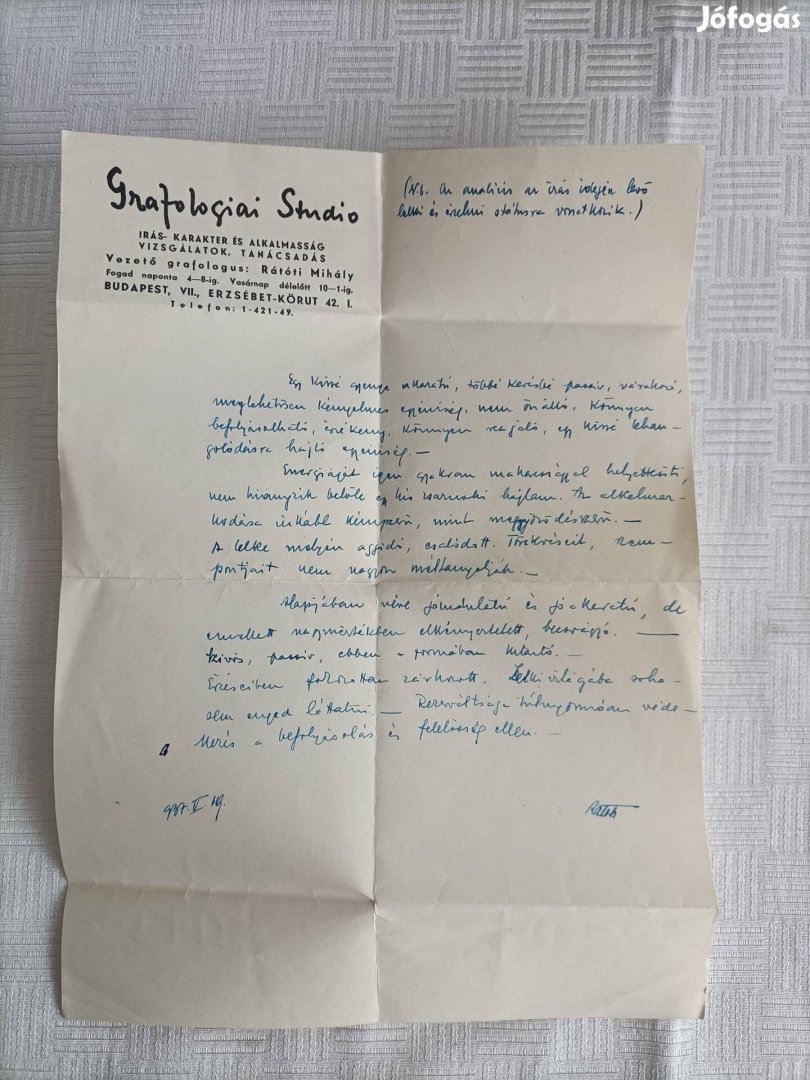 Jófogás
Grafologiai Studio
IRÁS- KARAKTER ÉS ALKALMASSÁG
VIZSGÁLATOK. TANÁCSADÁS
Vezető grafologus: Rátóti Mihály
Fogad naponta 4—8-ig. Vasárnap délelőtt 10—1-ig.
BUDAPEST, VII., ERZSÉBET-KÖRUT 42. I.
Telefon: 1-421-49.
(N.b. Az analízis az írás idején levő
lelki és érzelmi státusra vonatkozik.)
Egy kissé gyenge akaratú, többé kevésbé passiv, várakozó,
meglehetősen kényelmes egyéniség, nem önálló, könnyen
befolyásolható, érzékeny, könnyen reagáló, egy kissé lehan-
golódásra hajló egyéniség. —
Energiáját igen gyakran makacssággal helyettesíti,
nem hiányzik belőle egy kis zsarnoki hajlam. Az alkalmaz-
kodása inkább kényszerű, mint meggyőződésszerű. —
A lelke mélyén aggódó, csalódott. Törekvéseit, szem-
pontjait nem nagyon méltányolják. —
Alapjában véve jóindulatú és jóakaratú, de
emellett nagymértékben elkényeztetett, becsvágyó. —
Szívós, passiv, ebben a formában kitartó. —
Érzéseiben fokozottan zárkózott. Lelkivilágába soha-
sem enged láttatni. — Rezerváltsága túlnyomóan véde-
kezés a befolyásolás és felelősség ellen. —
937. II. 19.
Rátóti